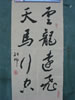 雲龍遠飛
天馬行空